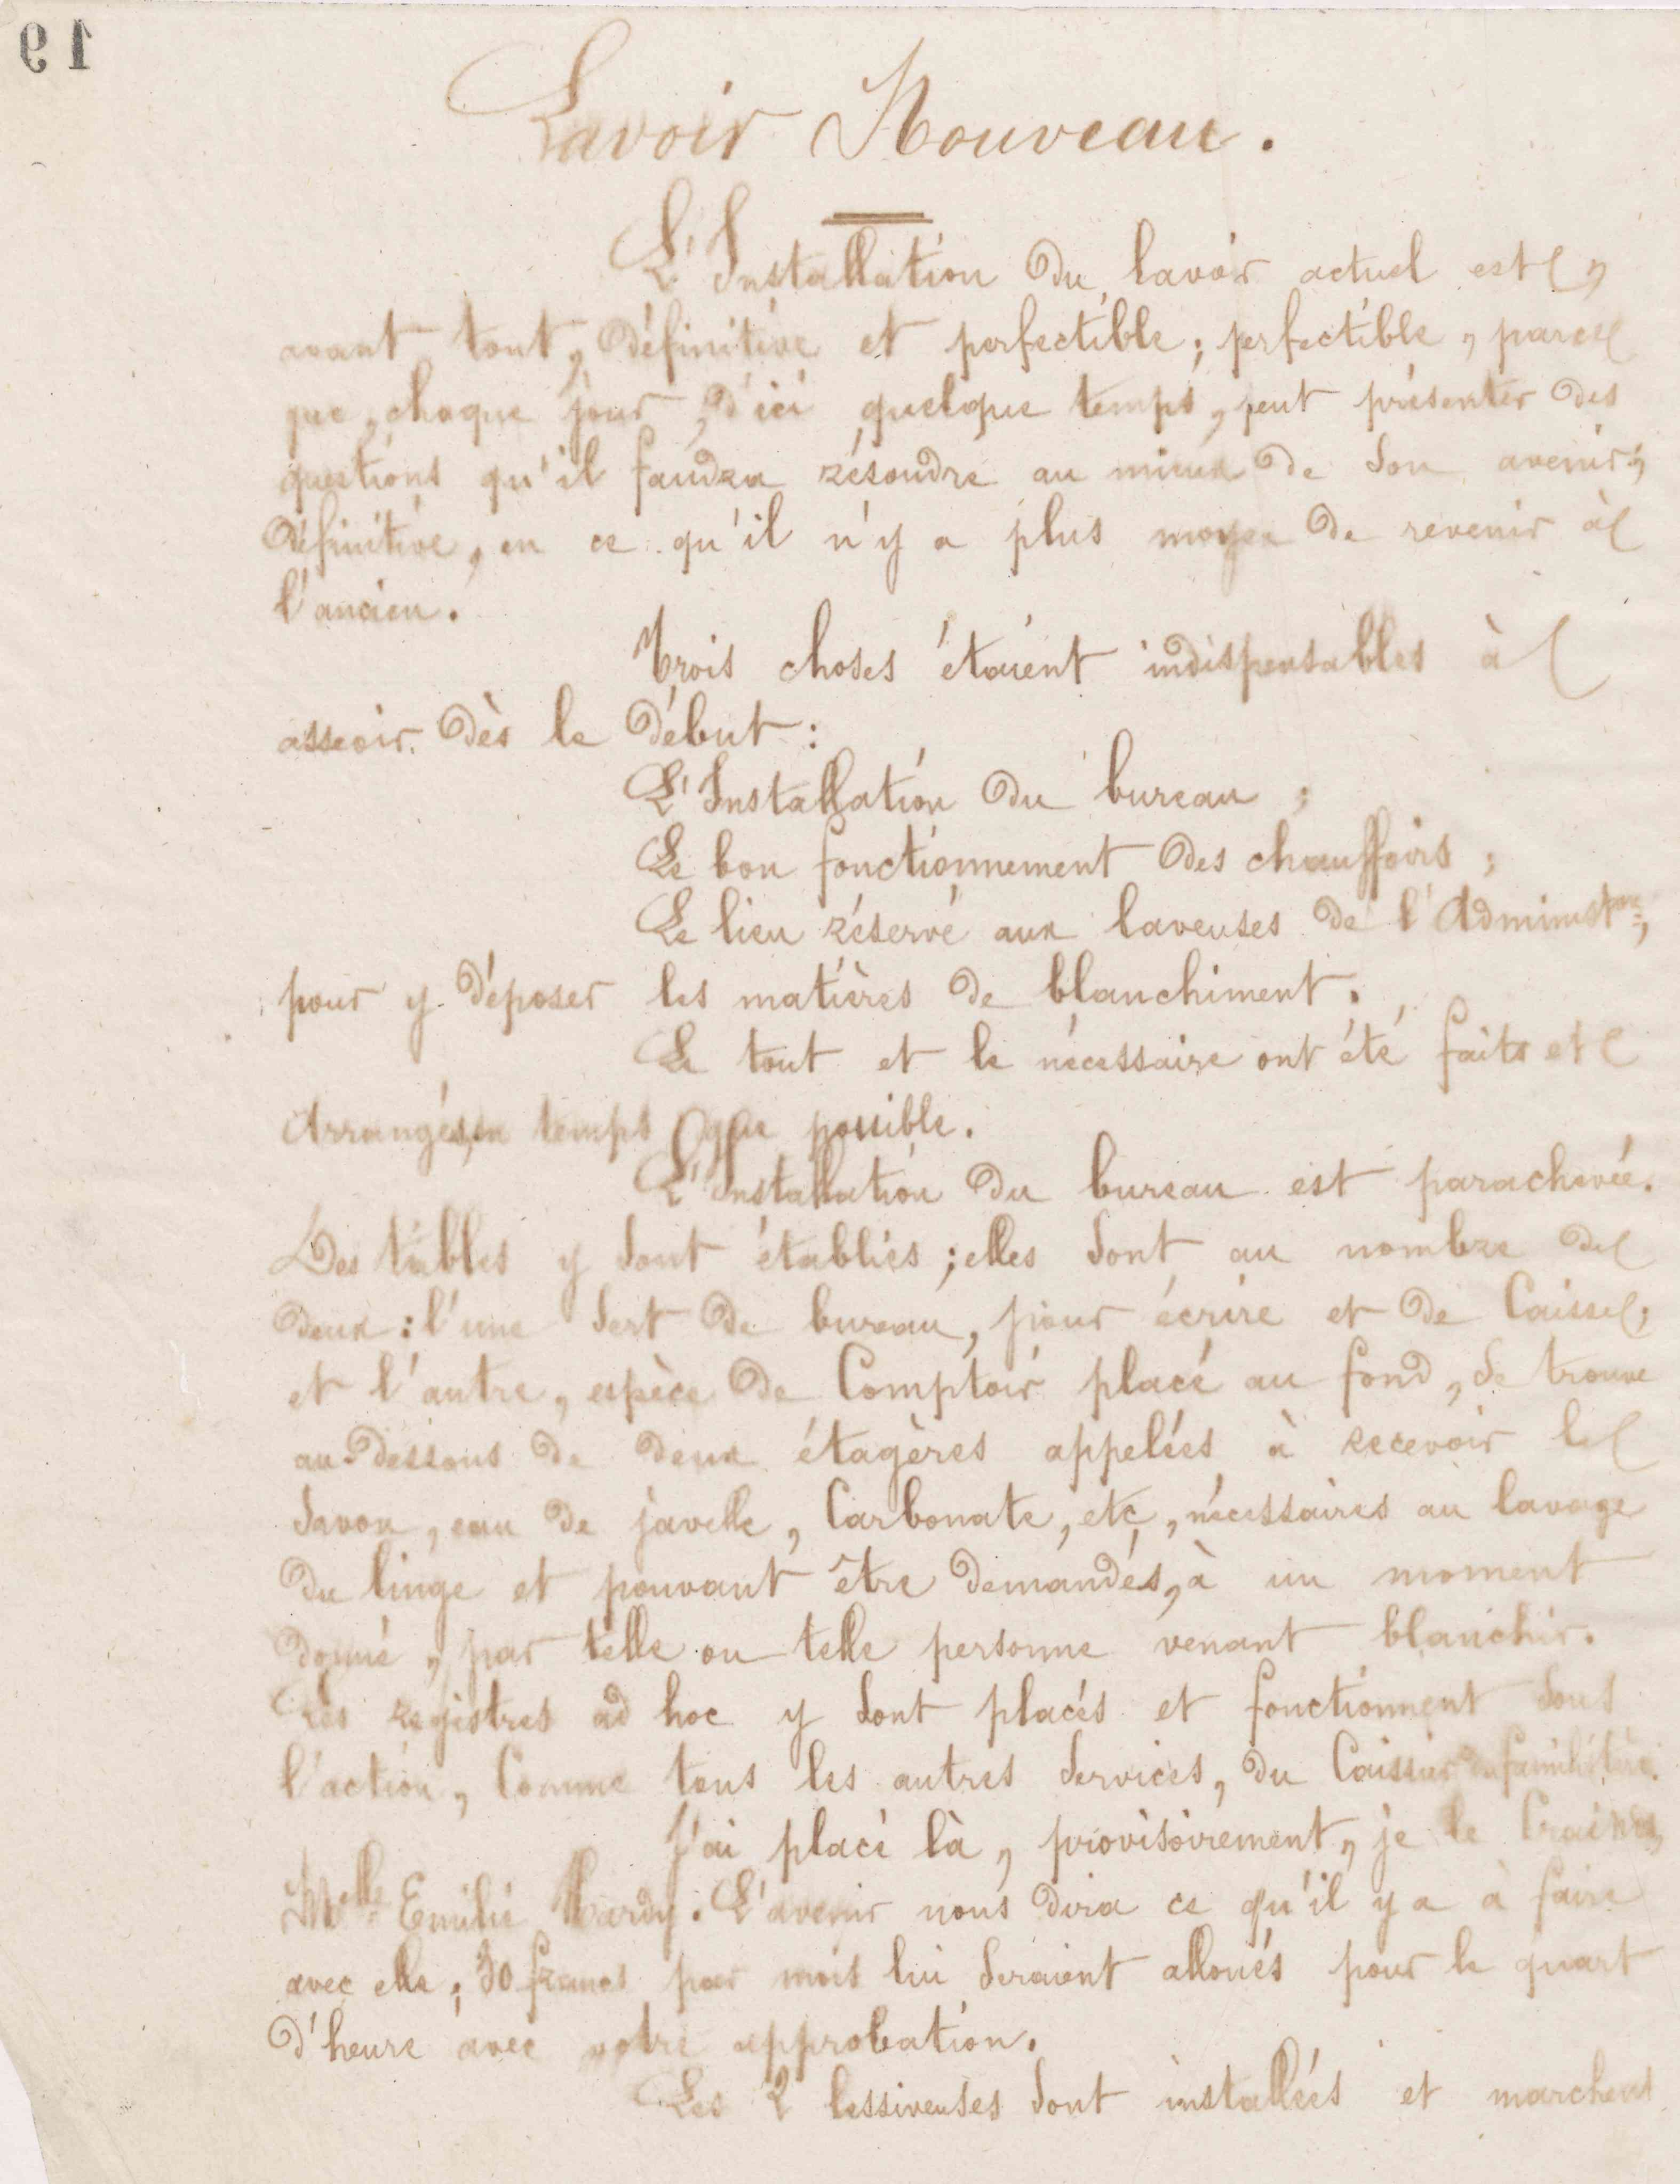 19
Lavoir Nouveau.
L'Installation du lavoir actuel est,
avant tout, définitive et perfectible; perfectible, parce
que, chaque jour, d'ici quelque temps, peut présenter des
questions qu'il faudra résoudre au mieux de son avenir;
définitive, en ce qu'il n'y a plus moyen de revenir à
l'ancien.
Trois choses étaient indispensables à
asseoir dès le début:
L'Installation du bureau;
Le bon fonctionnement des chauffoirs;
Le lieu réservé aux laveuses de l'Administ.on,
pour y déposer les matières de blanchiment.
Le tout et le nécessaire ont été faits et
arrangés, en temps que possible.
L'Installation du bureau est parachevée.
Des tables y sont établies; elles sont au nombre de
deux: l'une sert de bureau, pour écrire et de Caisse;
et l'autre, espèce de Comptoir placé au fond, se trouve
au-dessous de deux étagères appelées à recevoir le
savon, eau de javelle, Carbonate, etc, nécessaires au lavage
du linge et pouvant être demandés, à un moment
donné, par telle ou telle personne venant blanchir.
Les registres ad hoc y sont placés et fonctionnent sous
l'action, Comme tous les autres services, du Caissier du familistère.
J'ai placé là, provisoirement, je le Crains,
Melle Emilie Hardy. L'avenir nous dira ce qu'il y a à faire
avec elle; 30 francs par mois lui seraient alloués pour le quart
d'heure avec votre approbation.
Les 2 lessiveuses sont installées et marchent